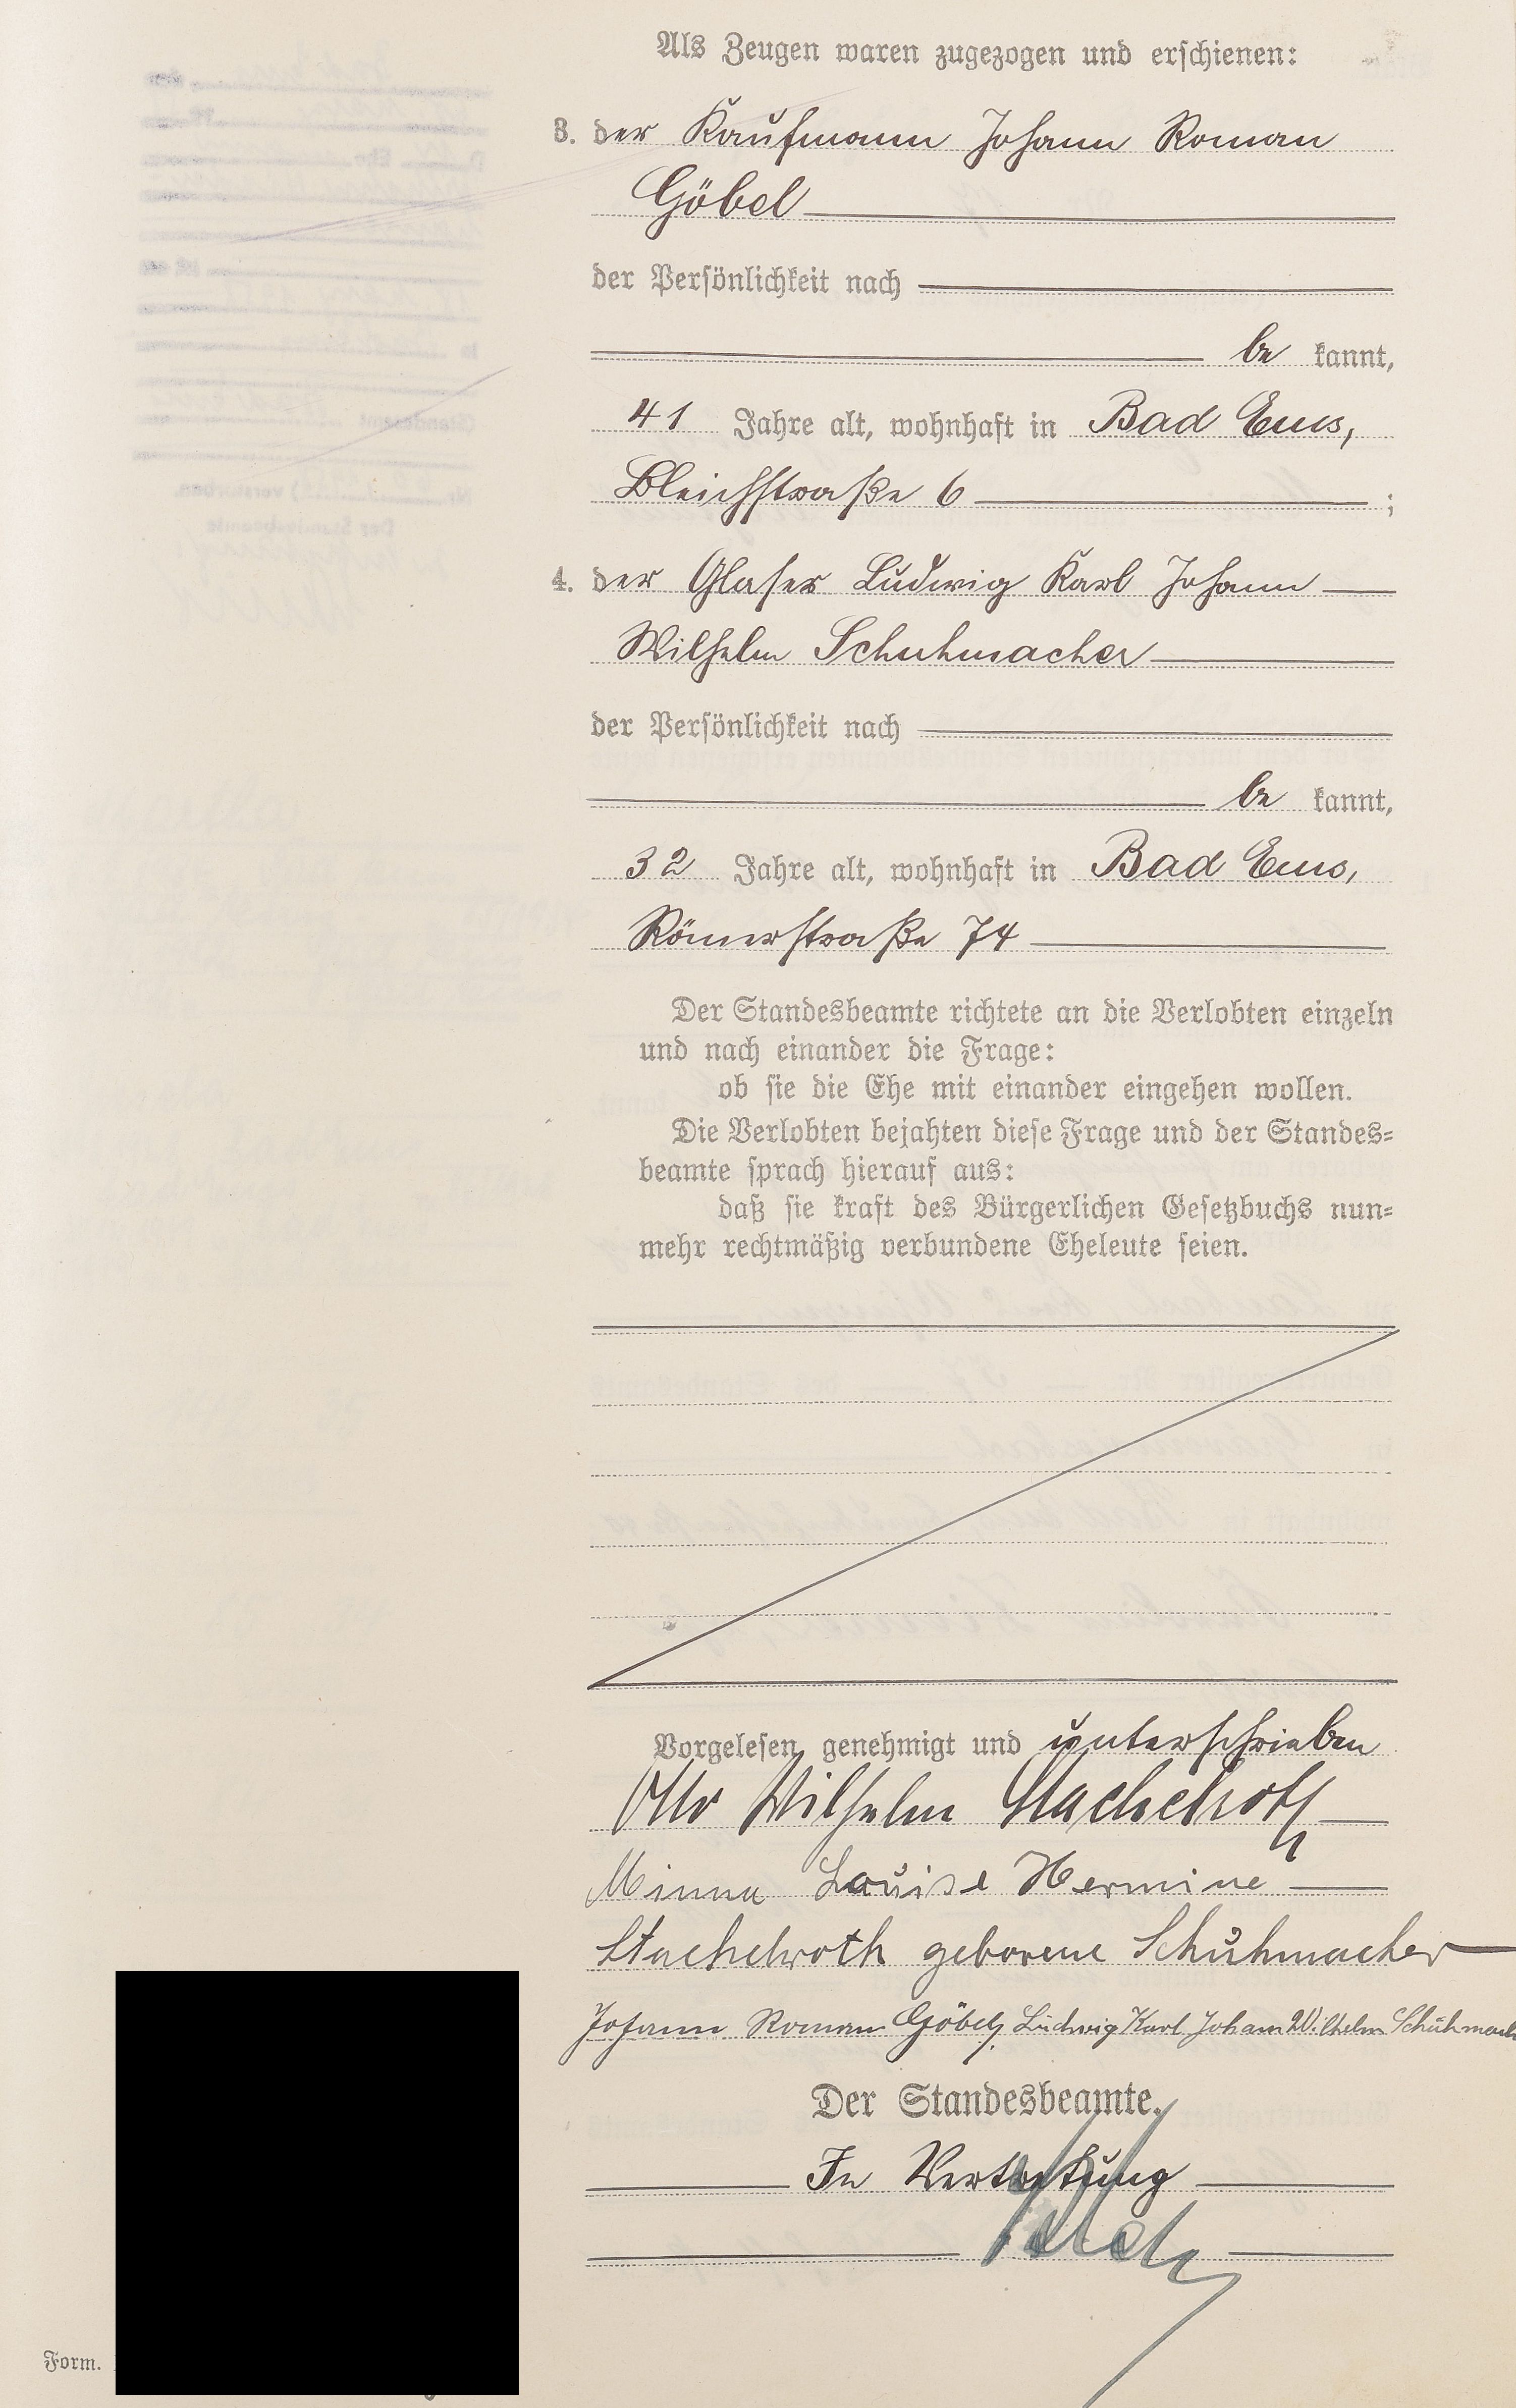 Als Zeugen waren zugezogen und erschienen:
3. der Kaufmann Johann Roman
Göbel
der Persönlichkeit nach
be kannt,
41 Jahre alt, wohnhaft in Bad Ems,
Bleichstraße 6 ;
4. der Glaser Ludwig Karl Johann
Wilhelm Schuhmacher
der Persönlichkeit nach
be kannt,
32 Jahre alt, wohnhaft in Bad Ems,
Römerstraße 74
Der Standesbeamte richtete an die Verlobten einzeln
und nach einander die Frage:
ob sie die Ehe mit einander eingehen wollen.
Die Verlobten bejahten diese Frage und der Standes=
beamte sprach hierauf aus:
daß sie kraft des Bürgerlichen Gesetzbuchs nun=
mehr rechtmäßig verbundene Eheleute seien.
Vorgelesen, genehmigt und unterschrieben
Otto Wilhelm Stachelroth
Minna Louise Hermine
Stachelroth geborene Schuhmacher
Johann Roman Göbel, Ludwig Karl Johann Wilhelm Schuhmach
Der Standesbeamte.
In Vertretung
Form.